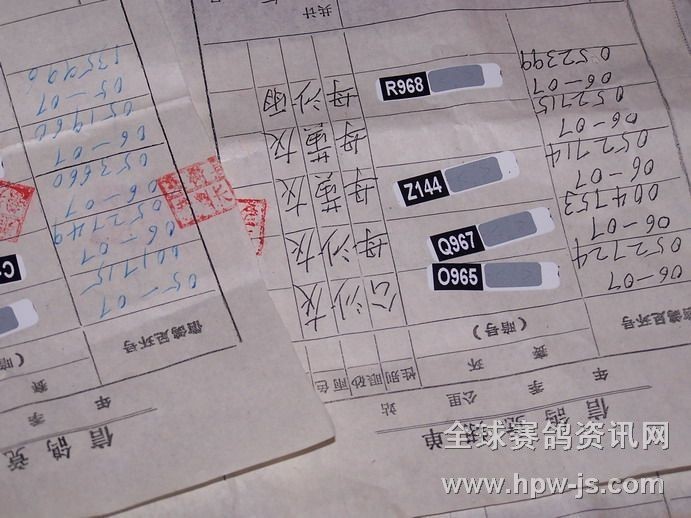 信鸽竞
单
年 季 公里 站
信鸽足环号
赛 环
(暗号)
性别 眼砂 雨色
06-07
052724 O965 公 沙 灰
06-07
004753 Q967 母 沙 灰
06-07
052714 Z144 母 黄 灰
06-07
052715 母 黄 灰
06-07
052399 R968 母 沙 雨
共计
信鸽竞
年 季
信鸽足环号
赛
(暗号)
05-07
001715
06-07
052749
06-07
053660
06-07
051960
05-07
535996
全球赛鸽资讯网
www.hpw-js.com